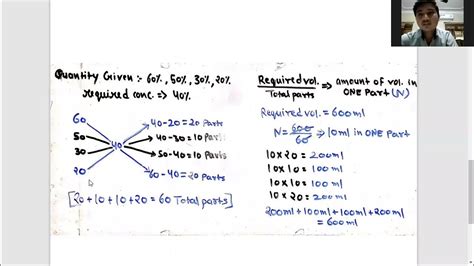 Quantity Given :- 60%, 50%, 30%, 20%
required conc. => 40%
60
50
30
20
40
40-20 = 20 Parts
40-30 = 10 Parts
50-40 = 10 Parts
60-40 = 20 Parts
[20 + 10 + 10 + 20 = 60 Total parts]
Required vol. => amount of vol. in
Total parts ONE Part (N)
Required vol. = 600ml
N = 600/60 => 10ml in ONE Part
10 x 20 = 200ml
10 x 10 = 100 ml
10 x 10 = 100 ml
10 x 20 = 200ml
200ml + 100ml + 100ml + 200ml
= 600ml